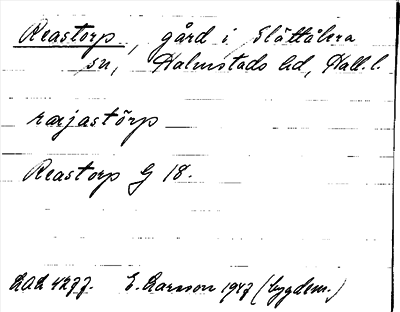 Reastorp, gård i Slättåkra
sn, Halmstads hd, Hall. l.
ræjastörp
Reastorp G 18.
Lad 4277. E. Larsson 1947 (bygdem.)